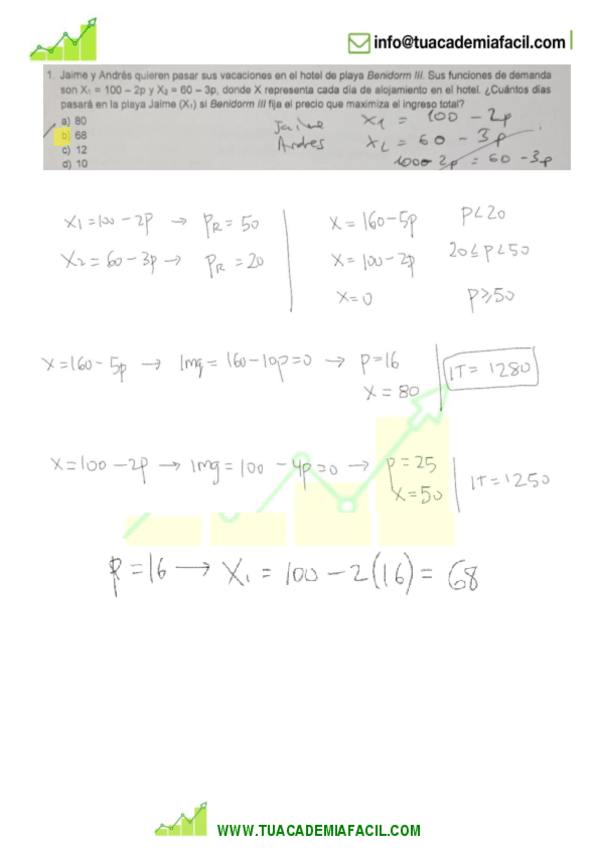 info@tuacademiafacil.com
1. Jaime y Andrés quieren pasar sus vacaciones en el hotel de playa Benidorm III. Sus funciones de demanda
son X₁ = 100 – 2p y X₂ = 60 – 3p, donde X representa cada día de alojamiento en el hotel. ¿Cuántos días
pasará en la playa Jaime (X₁) si Benidorm III fija el precio que maximiza el ingreso total?
a) 80
b) 68
c) 12
d) 10
Jaime X1 = 100 - 2p
Andres X2 = 60 - 3p
100-2p = 60-3p
X1=100-2p → PR=50
X2=60-3p → PR=20
X=160-5p p<20
X=100-2p 20≤p<50
X=0 p≥50
X=160-5p → Img=160-10p=0 → p=16
X=80
IT=1280
X=100-2p → Img=100-4p=0 → p=25
X=50
IT=1250
P=16 → X1=100-2(16)=68
WWW.TUACADEMIAFACIL.COM